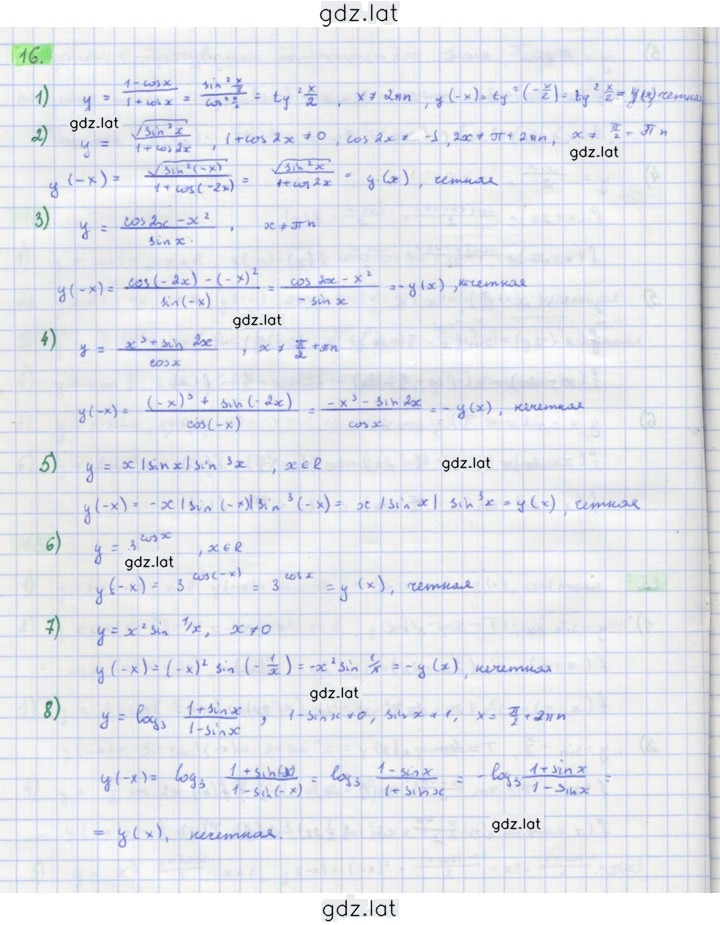 gdz.lat
16.
1) y = (1-cosx)/(1+cosx) = (sin² x/2)/(cos² x/2) = tg² x/2 , x ≠ 2πn , y(-x) = tg² (-x/2) = tg² x/2 = y(x) четная
gdz.lat
2) y = √(sin²x)/(1+cos2x) , 1+cos2x ≠ 0 , cos2x ≠ -1 , 2x ≠ π+2πn , x ≠ π/2 - πn
gdz.lat
y(-x) = √(sin²(-x))/(1+cos(-2x)) = √(sin²x)/(1+cos2x) = y(x) , четная
3) y = (cos2x - x²)/sinx , x ≠ πn
y(-x) = (cos(-2x) - (-x)²)/sin(-x) = (cos2x - x²)/(-sinx) = -y(x) , нечетная
gdz.lat
4) y = (x³+sin2x)/cosx , x ≠ π/2 + πn
y(-x) = ((-x)³ + sin(-2x))/cos(-x) = (-x³ - sin2x)/cosx = -y(x) , нечетная
5) y = x |sinx| sin³x , x∈R
gdz.lat
y(-x) = -x |sin(-x)| sin³(-x) = x |sinx| sin³x = y(x) , четная
6) y = 3^cosx , x∈R
gdz.lat
y(-x) = 3^cos(-x) = 3^cosx = y(x) , четная
7) y = x² sin 1/x , x ≠ 0
y(-x) = (-x)² sin(-1/x) = -x² sin 1/x = -y(x) , нечетная
gdz.lat
8) y = log₃ (1+sinx)/(1-sinx) , 1-sinx ≠ 0 , sinx ≠ 1 , x = π/2 + 2πn
y(-x) = log₃ (1+sin(-x))/(1-sin(-x)) = log₃ (1-sinx)/(1+sinx) = -log₃ (1+sinx)/(1-sinx) =
gdz.lat
= y(x) , нечетная.
gdz.lat